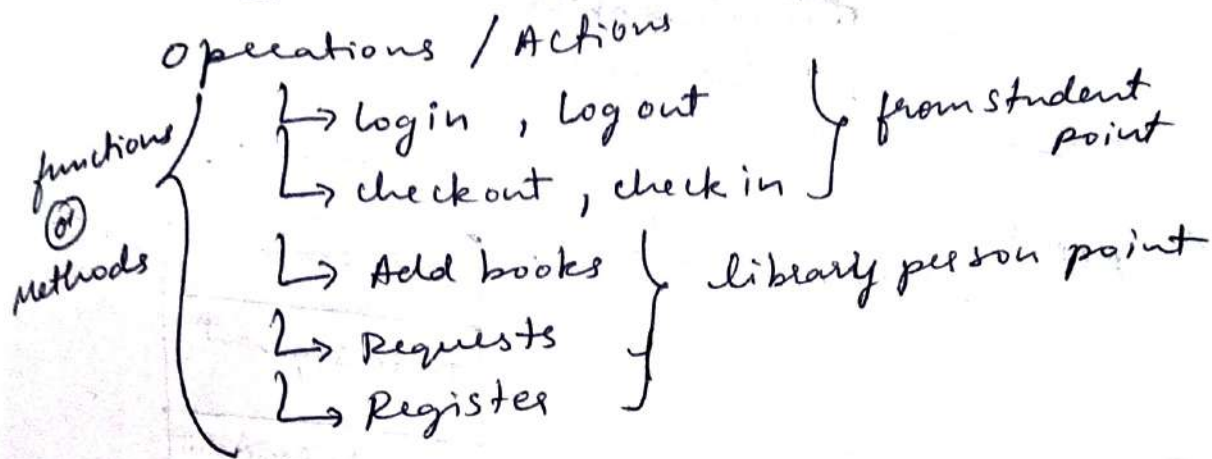 Operations / Actions
functions
or
Methods
↳ login , Log out
↳ checkout , check in
} from student
point
↳ Add books
↳ Requests
↳ Register
} library person point